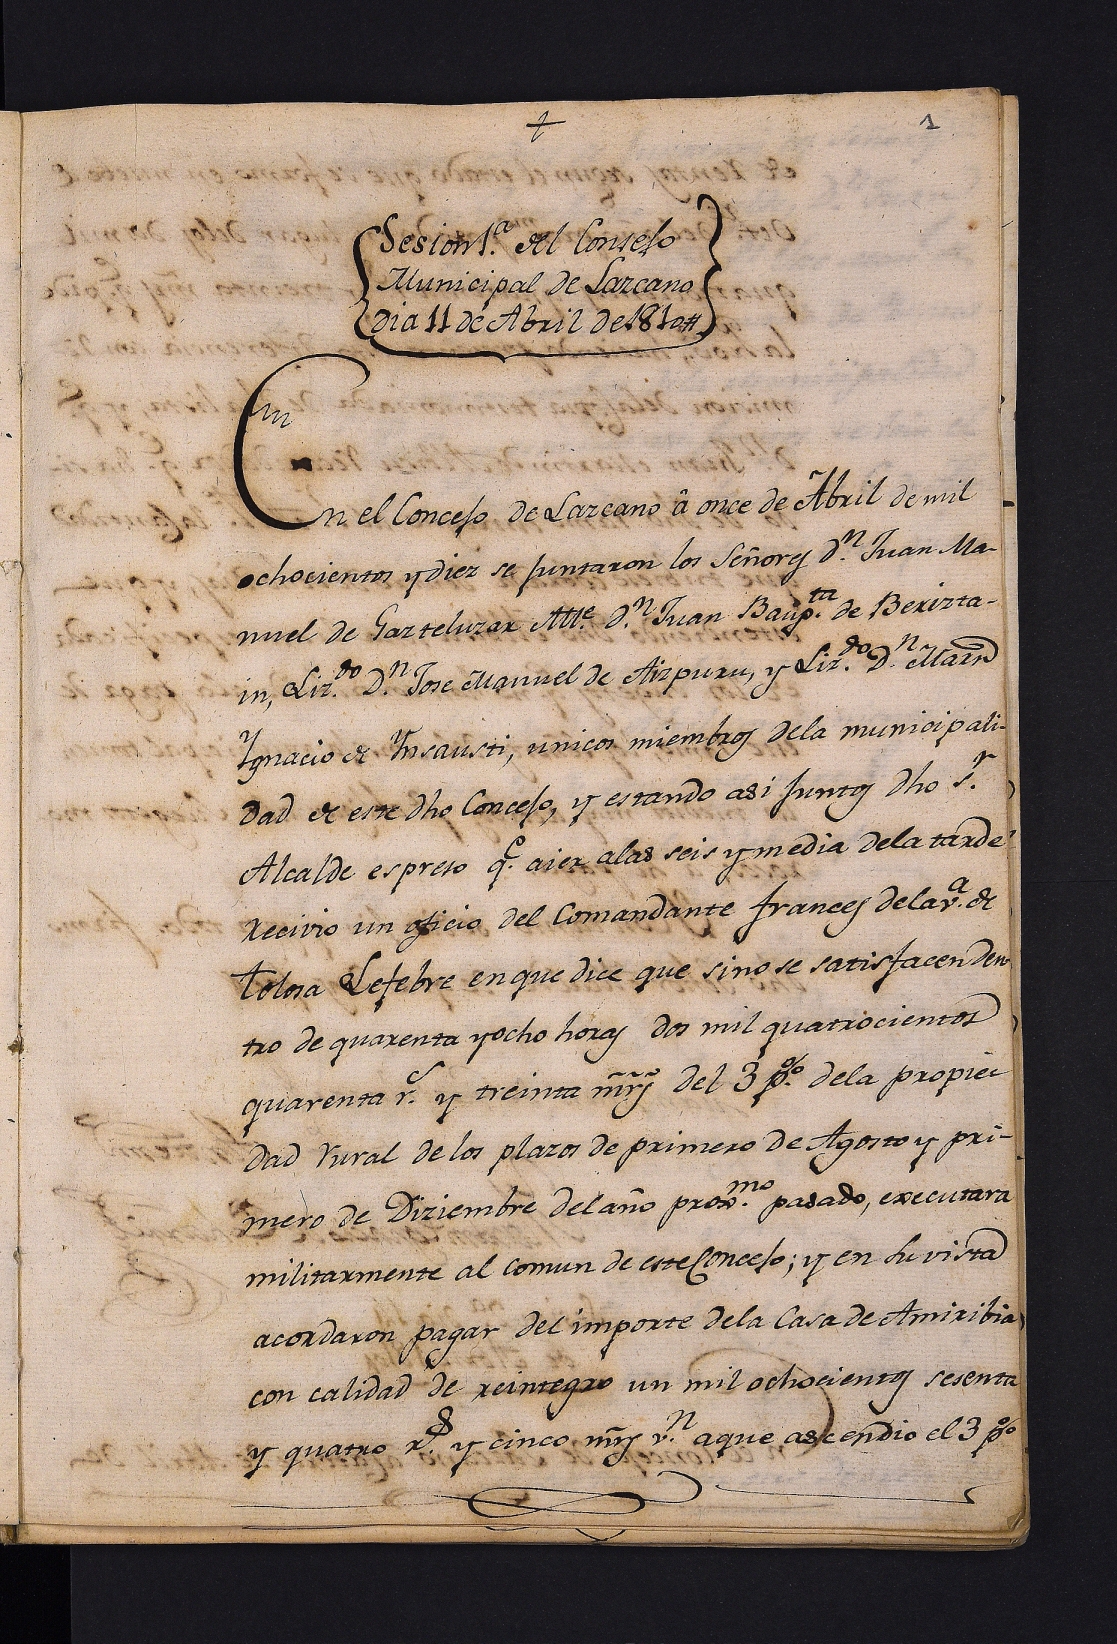 1
Sesion 1.a del Concejo
Municipal de Lazcano
Dia 11 de Abril de 1810
En
En el Concejo de Lazcano â once de Abril de mil
ochocientos y diez se juntaron los Señores d.n Juan Ma-
nuel de Gazteluzar Alle. D.n Juan Baup.ta de Berizta-
in, Liz.do D.n Jose Manuel de Aizpuru, y Liz.do D.n Marn
Ygnacio de Ynsausti, unicos miembros dela municipali-
dad de este dho Concejo, y estando asi juntos dho s.r
Alcalde espreso q.e aier alas seis y media dela tarde
recivio un oficio del Comandante frances dela v.a de
tolosa Lefebre en que dice que sino se satisfacen den
tro de quarenta y ocho horas dos mil quatrocientos
quarenta r.s y treinta mrs del 3 p.% dela propie-
dad rural de los plazos de primero de Agosto y pri-
mero de Diziembre del año prox.mo pasado, executara
militarmente al comun de este Concejo; y en su vista
acordaron pagar del importe dela Casa de Amiribia
con calidad de reintegro un mil ochocientos sesenta
y quatro r.s y cinco mrs v.n aque ascendio el 3 p%